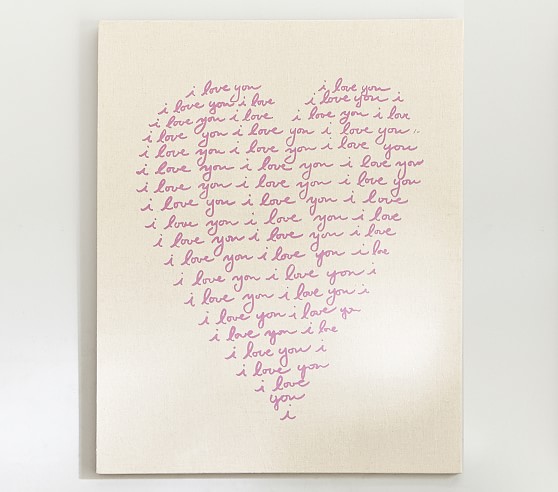 i love you i love you
i love you i love i love you i
i love you i love i love you i love
i love you i love you i love you i
i love you i love you i love you
i love you i love you i love you
i love you i love you i love you
i love you i love you i love
i love you i love you i love
i love you i love you i love
i love you i love you i love
i love you i love you i
i love you i love you i
i love you i love you
i love you i love
i love you i
i love you
i love
you
i